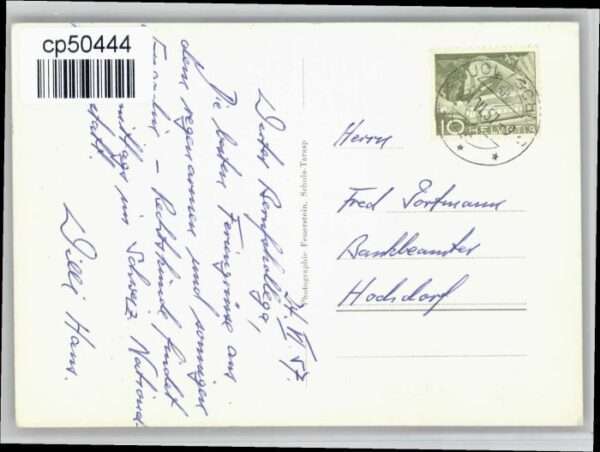 cp50444
24. VI. 57.
Werter Berufskollege,
Die besten Feriengrüsse aus
dem regenarmen und sonnigen
– Rechtskunde findet
im Schweiz. National-
statt.
Willi Hans.
Photographie Feuerstein, Schuls-Tarasp
10 HELVETIA
Herrn
Fred Portmann
Bankbeamter
Hochdorf